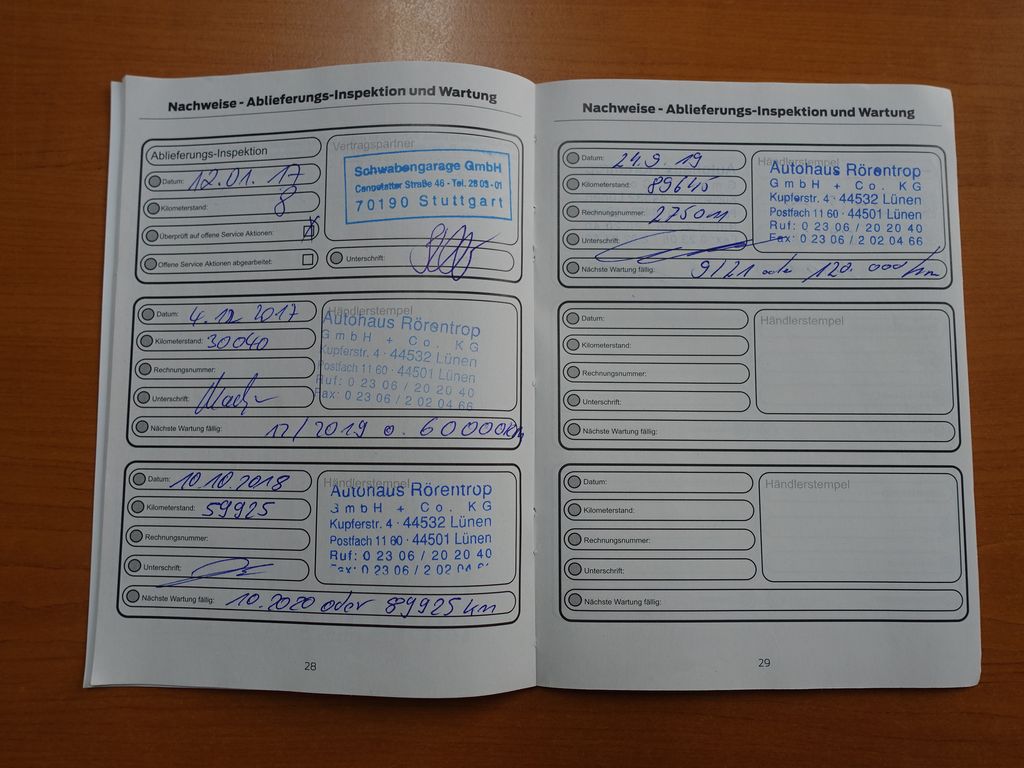 Nachweise - Ablieferungs-Inspektion und Wartung
Ablieferungs-Inspektion
Datum: 12.01.17
Kilometerstand: 8
Überprüft auf offene Service Aktionen: X
Offene Service Aktionen abgearbeitet:
Vertragspartner
Schwabengarage GmbH
Cannstatter Straße 46 - Tel. 28 03 - 01
70190 Stuttgart
Unterschrift:
Datum: 4.12.2017
Kilometerstand: 30040
Rechnungsnummer:
Unterschrift:
Händlerstempel
Autohaus Rörentrop
GmbH + Co. KG
Kupferstr. 4 · 44532 Lünen
Postfach 11 60 · 44501 Lünen
Ruf: 0 23 06 / 20 20 40
Fax: 0 23 06 / 2 02 04 66
Nächste Wartung fällig: 12/2019 o. 60000km
Datum: 10.10.2018
Kilometerstand: 59925
Rechnungsnummer:
Unterschrift:
Händlerstempel
Autohaus Rörentrop
GmbH + Co. KG
Kupferstr. 4 · 44532 Lünen
Postfach 11 60 · 44501 Lünen
Ruf: 0 23 06 / 20 20 40
Fax: 0 23 06 / 2 02 04 66
Nächste Wartung fällig: 10.2020 oder 89925 km
28
Nachweise - Ablieferungs-Inspektion und Wartung
Datum: 24.9.19
Kilometerstand: 89645
Rechnungsnummer:
Unterschrift:
Händlerstempel
Autohaus Rörentrop
GmbH + Co. KG
Kupferstr. 4 · 44532 Lünen
Postfach 11 60 · 44501 Lünen
Ruf: 0 23 06 / 20 20 40
Fax: 0 23 06 / 2 02 04 66
Nächste Wartung fällig: 9/21 oder 120.000 km
Datum:
Kilometerstand:
Rechnungsnummer:
Unterschrift:
Händlerstempel
Nächste Wartung fällig:
Datum:
Kilometerstand:
Rechnungsnummer:
Unterschrift:
Händlerstempel
Nächste Wartung fällig:
29